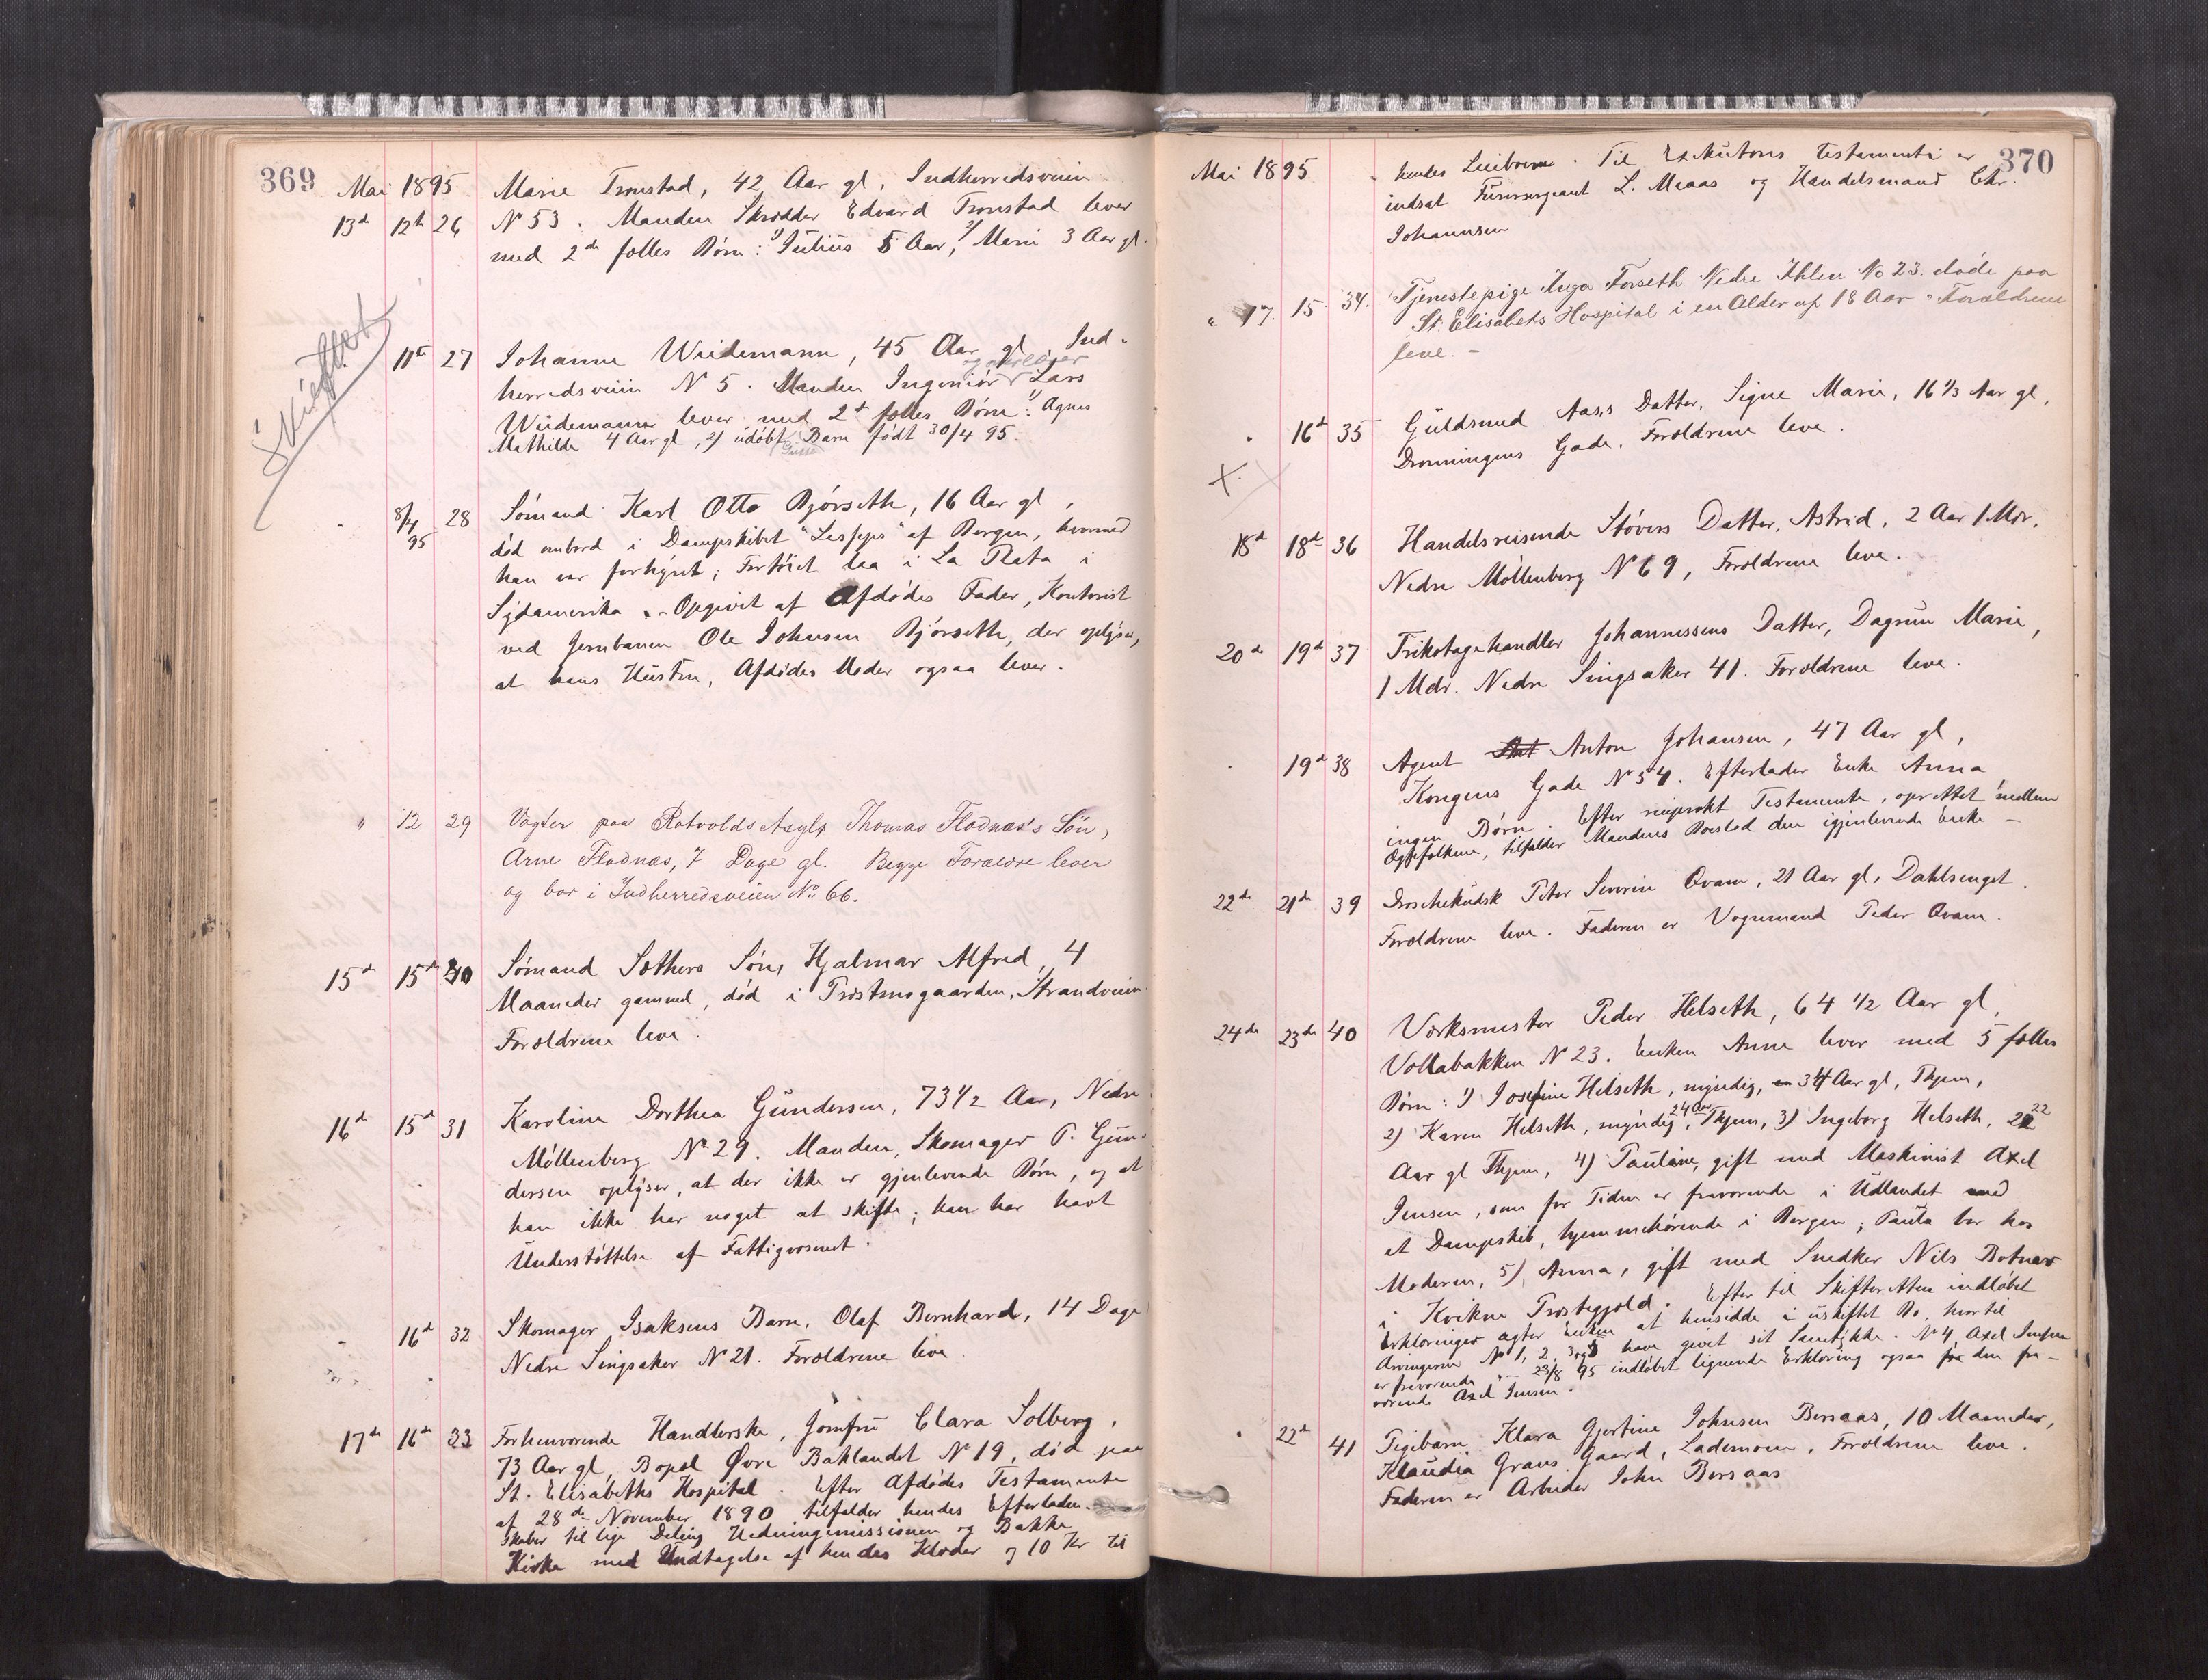 369
Mai 1895
Marie Tronstad, 42 Aar gl, Indherredsveien
13d 12th 26 N 53. Manden Skrædder Edvard Tronstad lever
med 2de fælles Børn: 1) Julius 5 Aar, 2) Marie 3 Aar gl.
Skiftet
11te 27 Johanne Wiidemann, 45 Aar gl, Ind-
herredsveien N 5. Manden Ingeniør Lars
Wiidemann lever med 2d fælles Børn: 1) Agnes
Mathilde 4 Aar gl, 2) udøbt Barn født 30/4 95.
8/4 95 28 Sømand Karl Otto Bjørseth, 16 Aar gl,
død ombord i Dampskibet "Lesseps" af Bergen, hvormed
han var forhyret; Fartøiet laa i La Plata i
Sydamerika. - Opgivet af Afdødes Fader, Kontorist
ved Jernbanen Ole Johnsen Bjørseth, der oplyser,
at hans Hustru, Afdødes Moder ogsaa lever.
" 12 29 Vagter paa Rotvolds Asyls Thomas Flodnæs's Søn,
Arne Flodnæs, 7 Dage gl. Begge Forældre lever
og bor i Indherredsveien No 66.
15d 15d 30 Sømand Sæthers Søn, Hjalmar Alfred, 4
Maaneder gammel, død i Trostmogaarden, Strandveien.
Forældrene leve.
16d 15d 31 Karoline Dorthea Gundersen, 73 1/2 Aar, Nedre
Møllenberg N 29. Manden, Skomager P. Gun-
dersen oplyser, at der ikke er gjenlevende Børn, og at
han ikke har noget at skifte; han har havt
Understøttelse af Fattigvæsenet.
16d 32 Skomager Isaksens Barn, Olaf Bernhard, 14 Dage
Nedre Singsaker N 21. Forældrene leve.
17de 16de 33 Forhenværende Handlerske, Jomfru Clara Solberg,
73 Aar gl, Bopæl Øvre Baklandet N 19, død paa
St. Elisabeths Hospital. Efter Afdødes Testamente
af 28de November 1890 tilfalder hendes Efterladen-
skaber til lige Deling Hedningemissionen og Bakke
Kirke med Undtagelse af hendes Klæder og 10 Kr til
370
Mai 1895
hendes. Til Exekutores Testamenti er
indsat Furersergeant L. Moaas og Handelsmand Chr.
Johannsen
" 17. 15. 34. Tjenestepige Inga Forseth Nedre Ihlen No 23. døde paa
St. Elisabets Hospital i en Alder af 18 Aar. Forældrene
leve. -
16d 35 Guldsmed Aas's Datter, Signe Marie, 16 1/3 Aar gl,
Dronningens Gade. Forældrene leve.
X.
18d 18d 36 Handelsreisende Støvers Datter, Astrid, 2 Aar 1 Mdr,
Nedre Møllenberg N 69, Forældrene leve.
20de 19d 37 Trikotagehandler Johannessens Datter, Dagrun Marie,
1 Mdr. Nedre Singsaker 41. Forældrene leve.
19d 38 Agent Ant Anton Johansen, 47 Aar gl,
Kongens Gade N 54. Efterlader Enke Anna
ingen Børn. Efter Testamente, oprettet mellem
Ægtefolkene, tilfalder Mandens Boeslod den igjenlevende Enke -
22de 21de 39 Droschekudsk Peter Severin Qvam, 21 Aar gl, Dahlsenget.
Forældrene leve. Faderen er Vognmand Peder Qvam.
24de 23de 40 Værksmester Peder Helseth, 64 1/2 Aar gl,
Vollabakken N 23. Enken Anne lever med 5 fælles
Børn: 1) Josefine Helseth, myndig, 34 Aar gl, Thjem,
2) Karen Helseth, myndig, 24 Aar, Thjem, 3) Ingeborg Helseth, 22
Aar gl Thjem, 4) Pauline, gift med Maskinist Axel
Jensen, som for Tiden er fraværende i Udlandet med
et Dampskib, hjemmehørende i Bergen; Paula bor hos
Moderen, 5) Anna, gift med Snedker Nils Botner
i Kvikne Præstegjeld. Efter til Skifteretten indløbet
Erklæringer agter Enken at hensidde i uskiftet Bo, hvortil
Arvingerne N 1, 2, 3 og 5 have givet sit Samtykke. N 4, Axel Jensen
er fraværende. - 23/8 95 indløbet lignende Erklæring ogsaa fra den fra-
værende Axel Jensen.
22d 41 Pigebarn Klara Gjertine Johnsen Bersaas, 10 Maaneder,
Klaudia Grans Gaard, Lademoen, Forældrene leve.
Faderen er Arbeider John Bersaas